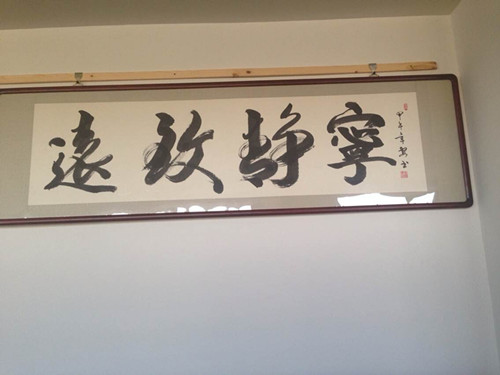 寧静致遠
甲午年